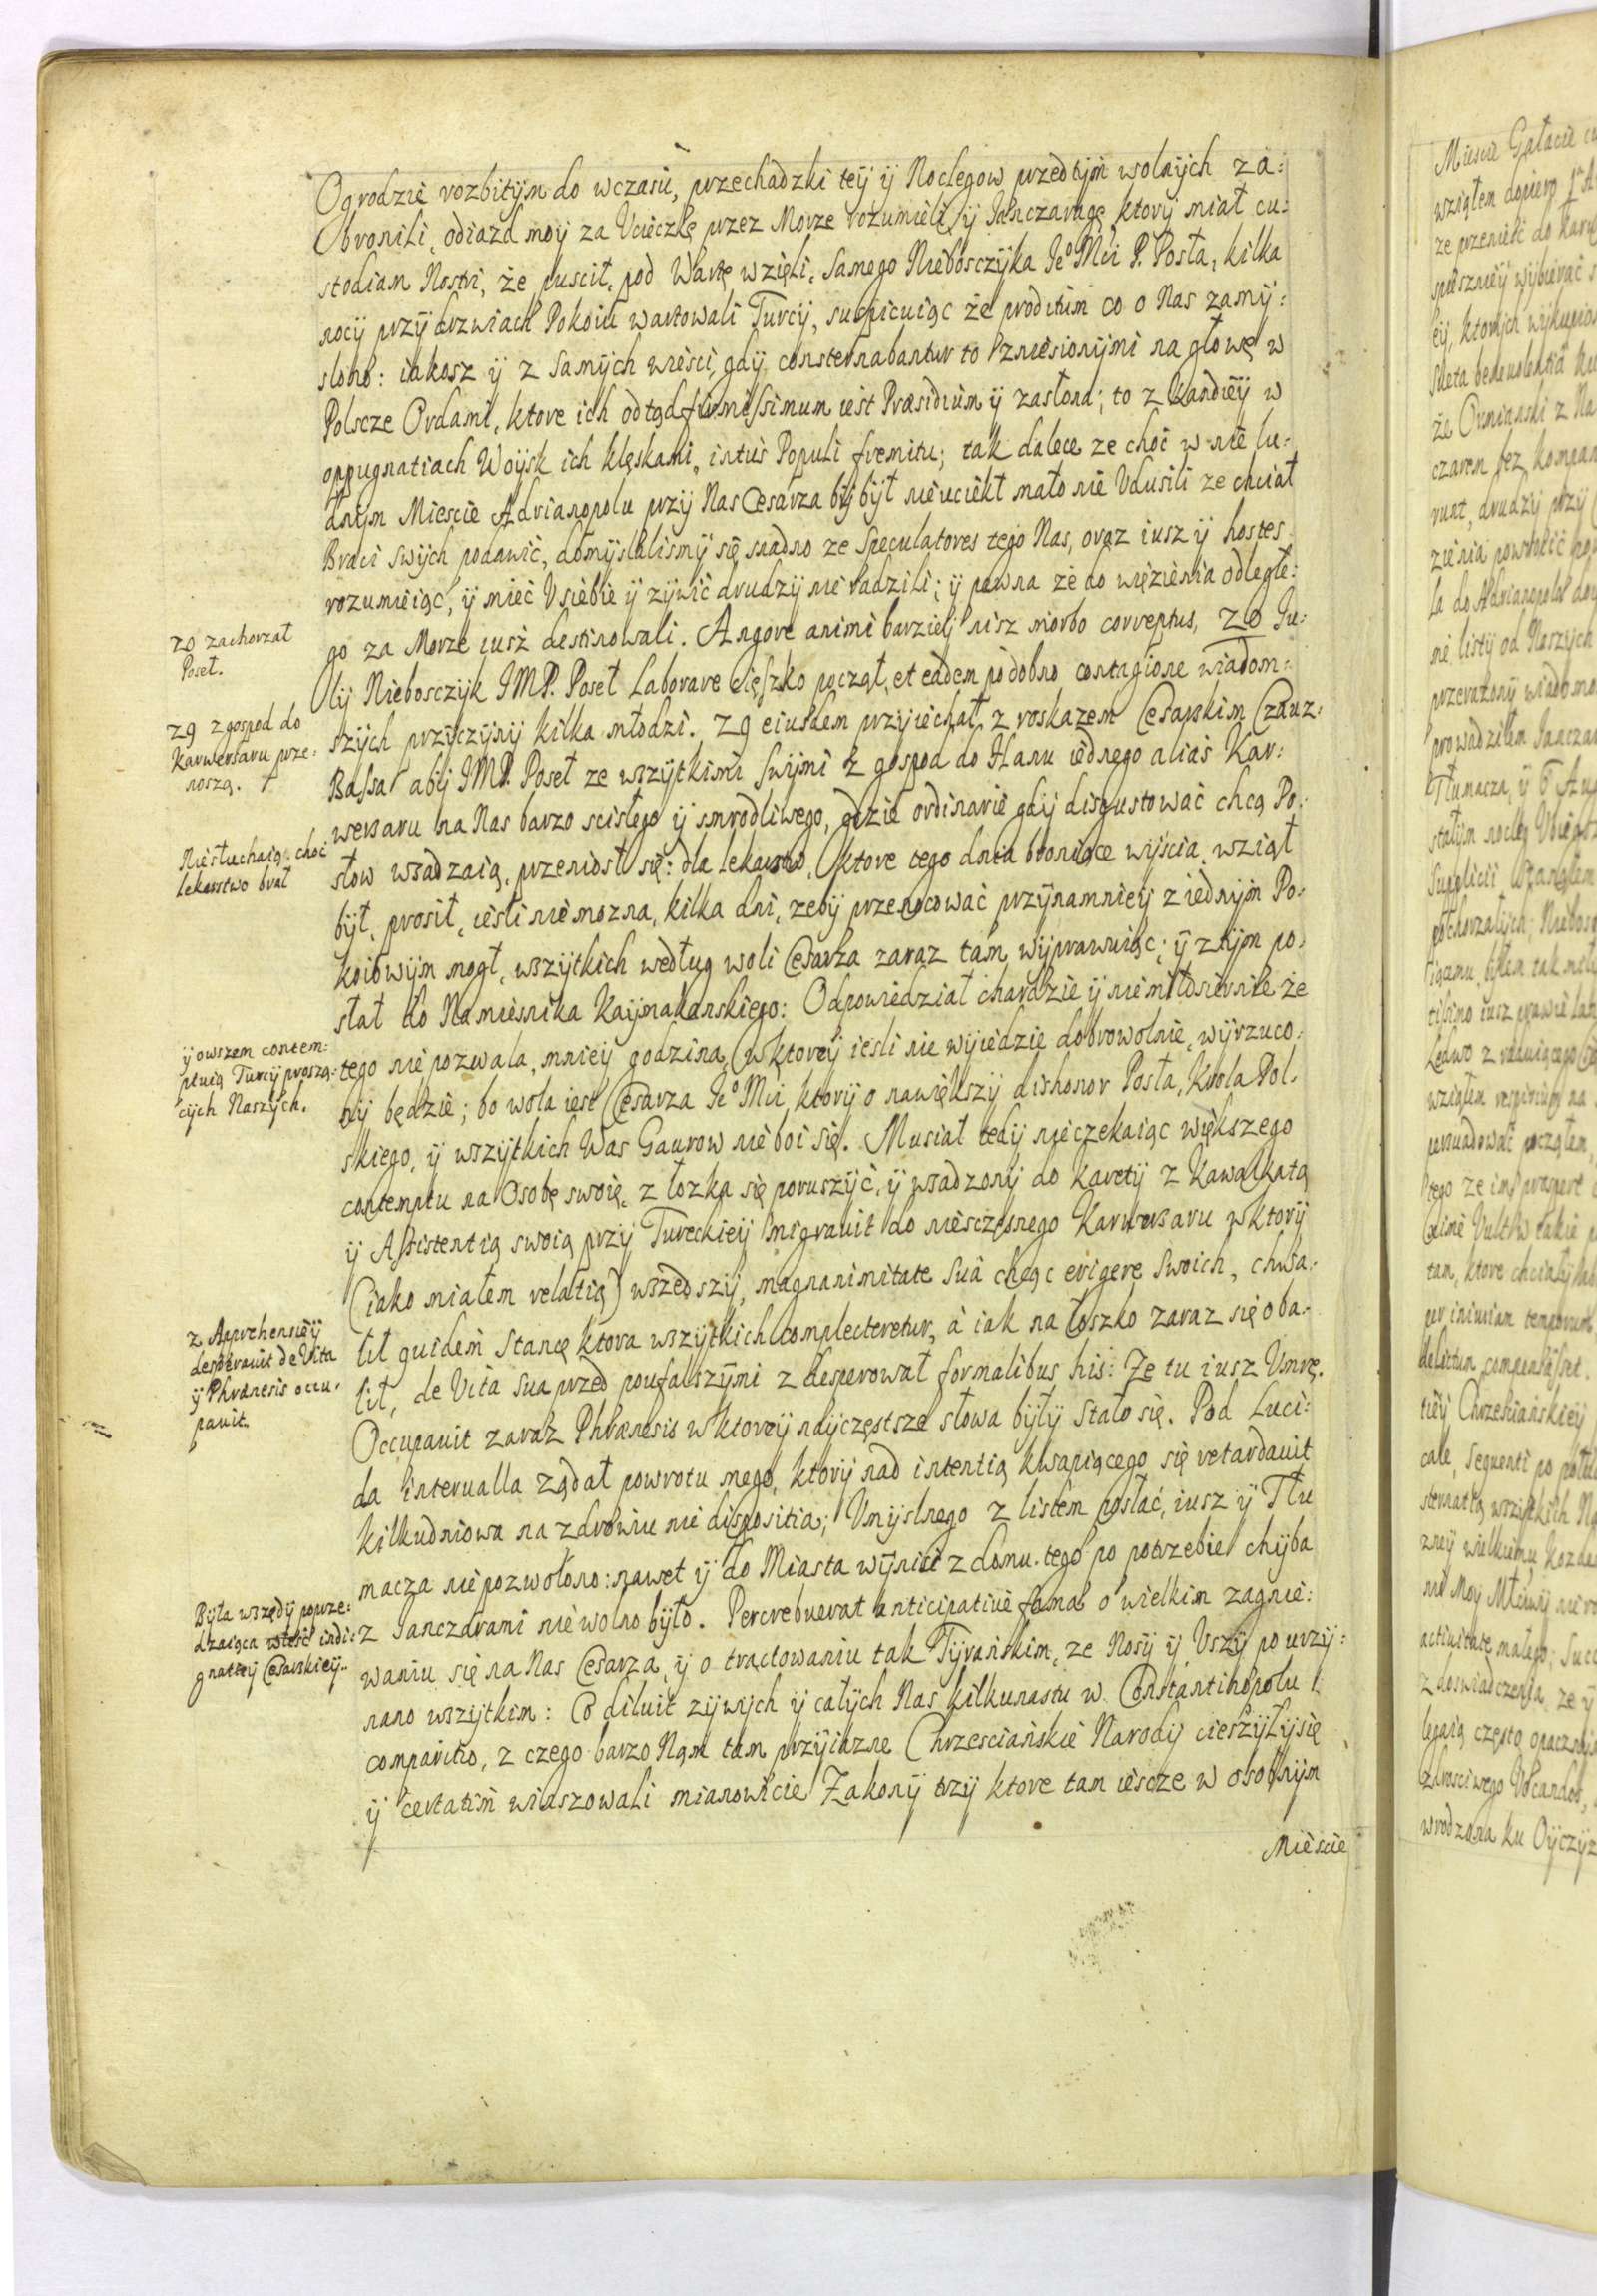 Ogrodzie rozbitym do wczasu, przechadzki tey y Noclegow przedtym wolnych za:
bronili, odiazd moy za Ucieczkę przez Morze rozumieli, y Janczaragę ktory miał cu:
stodiam Nostri, że puscił, pod Wartę wzięli, samego Nieboszczyka Je° Mci P. Posła, kilka
nocy przy drzwiach Pokoiu wartowali Turcy, suspicuiąc że proditum co o Nas zamy:
slono: iakosz y z samych wieści, gdy consternabantur to zniesionymi na głowę w
Polscze Ordami, ktore ich odtąd firmissimum iest Præsidium y zasłona; to z Kandiey w
oppugnatiach Woysk ich klęskami, intus Populi fremitu; tak dalece ze choć w nie lu:
dnym Miescie Adrianopolu przy Nas Cesarza by był nieuciekł mało nie Udusili ze chciał
Braci swych podawić, domyslalismy się snadno ze Speculatores tego Nas, oraz iusz y hostes
rozumieiąc, y mieć Usiebie y zywić drudzy nie radzili; y pewna że do więzienia odległe:
go za Morze iusz destinowali. Angore animi barziey nisz morbo correptus, 20 Ju:
lij Niebosczyk JMP. Poseł Laborare cięszko począł, et eadem podobno contagione wiadom:
szych przyczyny kilka młodzi. 29 eiusdem przyiechał, z roskazem Cesarskim Czauz:
Bassa aby JMP. Poseł ze wszytkimi swymi z gospod do Hanu iednego alias Kar:
wersaru na Nas barzo scisłego y smrodliwego, gdzie ordinarie gdy disgustować chcą Po:
słow wsadzaią, przeniosł się: dla lekarstw, ktore tego dnia broniące wyścia, wziął
był, prosił, iesli nie mozna, kilka dni, zeby przenocować przynamniey z iednym Po:
koiowym mogł, wszytkich według woli Cesarza zaraz tam wyprawuiąc; y z tym po:
słał do Namiesnika Kaymakanskiego: Odpowiedział chardzie y niemiłosiernie że
tego nie pozwala, mniey godzina, wktorey iesli nie wyiedzie dobrowolnie, wyrzuco:
ny będzie; bo wola iest Cesarza Je° Mci, ktory o nawiększy dishonor Posła, Krola Pol:
skiego, y wszytkich Was Gaurow nie boi się. Musiał tedy nieczekaiąc większego
contemptu na Osobę swoię, z łozka się poruszyć, y wsadzony do karety z Kawalkatą
y Assistentią swoią przy Tureckiey migravit do niesczęsnego Karwersaru wktory
(iako miałem relatią) wszedszy, magnanimitate suâ chcąc erigere swoich, chwa:
lił quidem Stancę ktora wszytkich complecteretur, à iak na łoszko zaraz się oba:
lił, de Vita sua przed poufalszymi zdesperował formalibus his: Ze tu iusz Umrę.
Occupauit zaraz Phrænesis wktorey nayczęstsze słowa były Stało się. Pod Luci:
da interualla ządał powrotu mego, ktory nad intentią kwapiącego się retardauit
kilkudniowa na zdrowiu nie dispositia; Umyslnego z listem posłać, iusz y Tłu
macza nie pozwolono: nawet y do Miasta wyniść z domu tego po potrzebie chyba
z Janczarami nie wolno było. Percrebuerat anticipative fama o wielkim zagnie:
waniu się na Nas Cesarza, y o tractowaniu tak Tyrańskim, ze Nosy y Uszy pourzy:
nano wszytkim: Co diluit zywych y całych Nas kilkunastu w Constantinopolu
comparitio, z czego barzo Nam tam przyiazne Chrzesciańskie Narody cieszyły się
y certatim wiaszowali mianowicie Zakony trzy ktore tam iescze w osobnym
Miescie
20 zachorzał
Poseł.
29 z gospod do
Karwersaru prze:
noszą.
Niesłuchaią choć
lekarstwo brał
y owszem contem:
ptuią Turcy proszą:
cych Naszych.
z Apprehensiey
desperauit de Vita
y Phrænesis occu:
pauit.
Była wszędy poprze:
dzaiąca wieść indi:
gnatiey Cesarskiey.